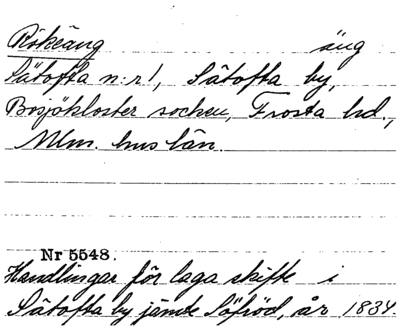 Rökeäng äng
Sätofta n:r 1, Sätofta by,
Bosjökloster socken, Frosta hd.,
Mlm. hus län.
Nr 5548.
Handlingar för laga skifte i
Sätofta by jämte Söfröd, år 1834.